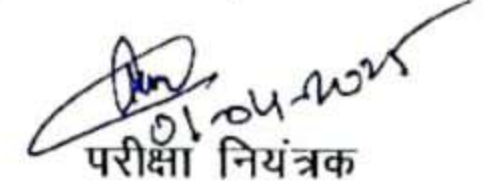 01-04-2025
परीक्षा नियंत्रक